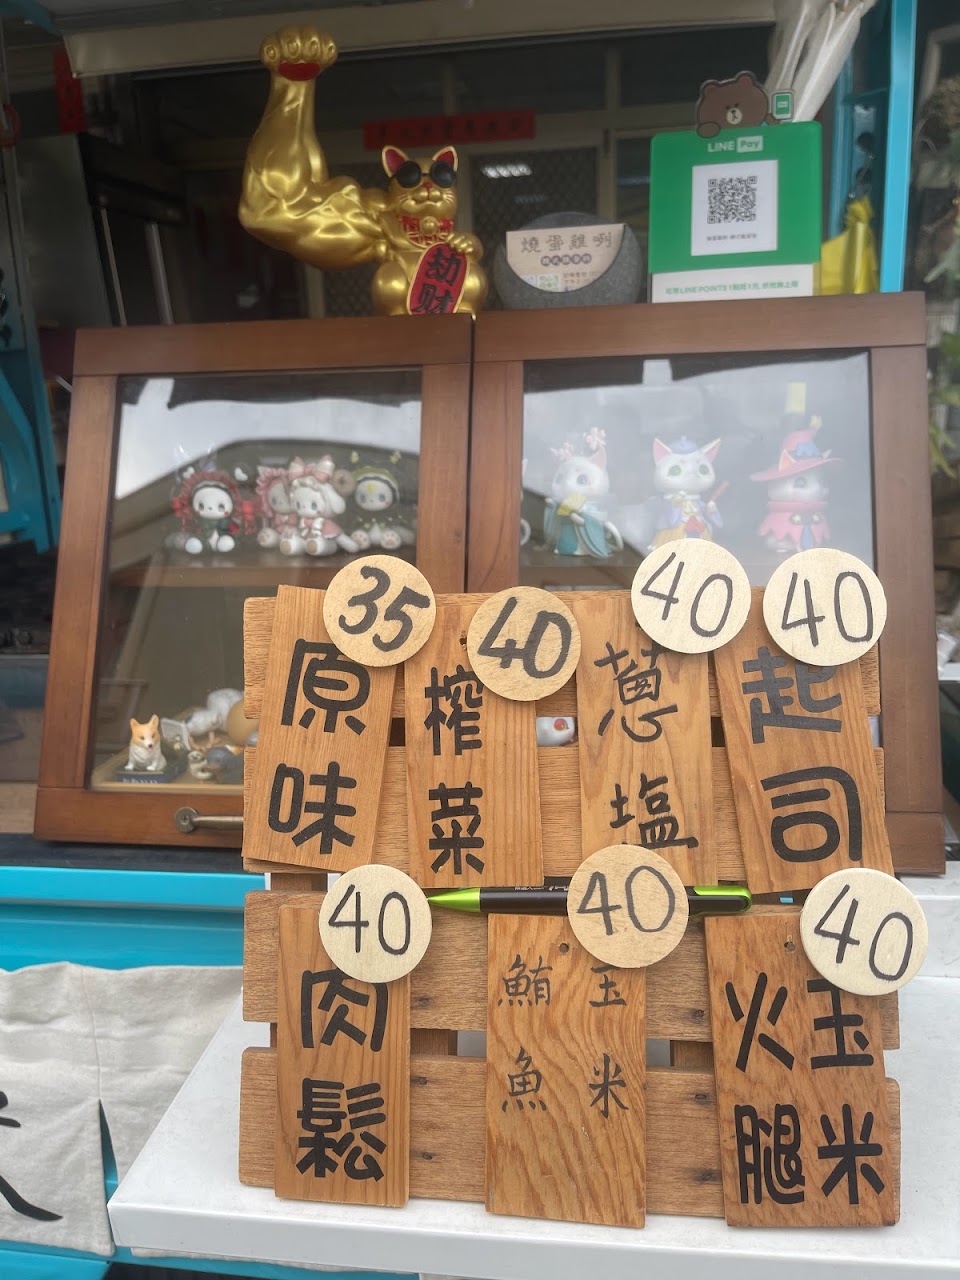 LINE Pay
燒蛋雞咧
劫财
35
原味
40
榨菜
40
蔥塩
40
起司
40
肉鬆
40
玉米
鮪魚
40
玉米
火腿